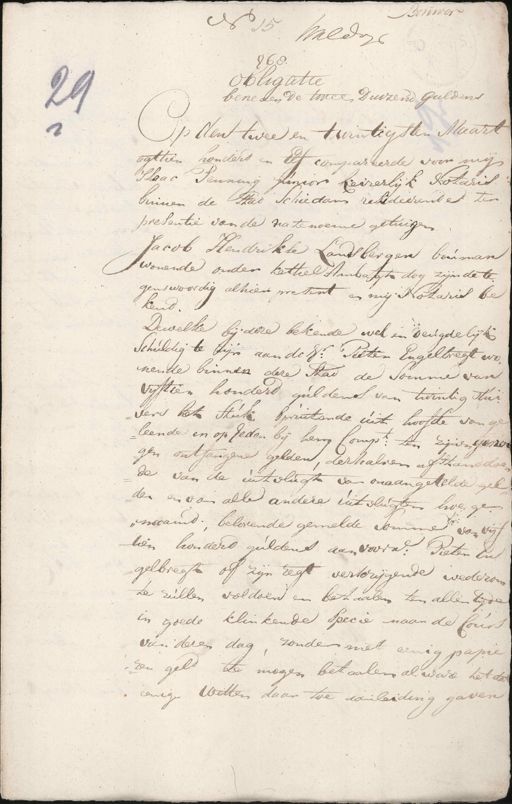 No 15
29
Obligatie
beneden de twee Duizend Guldens
Op den twee en twintigsten Maart
agttien honderd en Elf compareerde voor mij
Isaac Penning Junior Keizerlijk Notaris
binnen de Stad Schiedam resideerende ter
presentie van de natenoeme getuigen
Jacob Hendrikse Landbergen bouman
wonende onder Kethel dog zijnde te
genswoordig alhier present en mij Notaris be
kend.
Dewelke bij deze bekende wel en deugdelijk
schuldig te zijn aan de Hr. Pieter Engelbregt wo
nende binnen deze Stad de Somme van
vijftien honderd guldens van twintig stui
vers het stuk spruitende uit hoofde van ge
leende en op heden bij hem Compt. ten zijnen genoe
gen ontfangene gelden, derhalven afstand doen
de van de uitvlugt van onaangetelde gel
den en van alle andere uitvlugten hoe gen
naamd, belovende gemelde somme van vijf
tien honderd guldens aan voorn. Pieter En
gelbregt of zijn regt verkrijgende wederom
te zullen voldoen en betaalen ten allen tijde
in goede klinkende Specie naar de Cours
van deren dag, zonder met eenig papie
ren geld te mogen betaalen al ware het dat
eenige Wetten daar toe aanleiding gaven